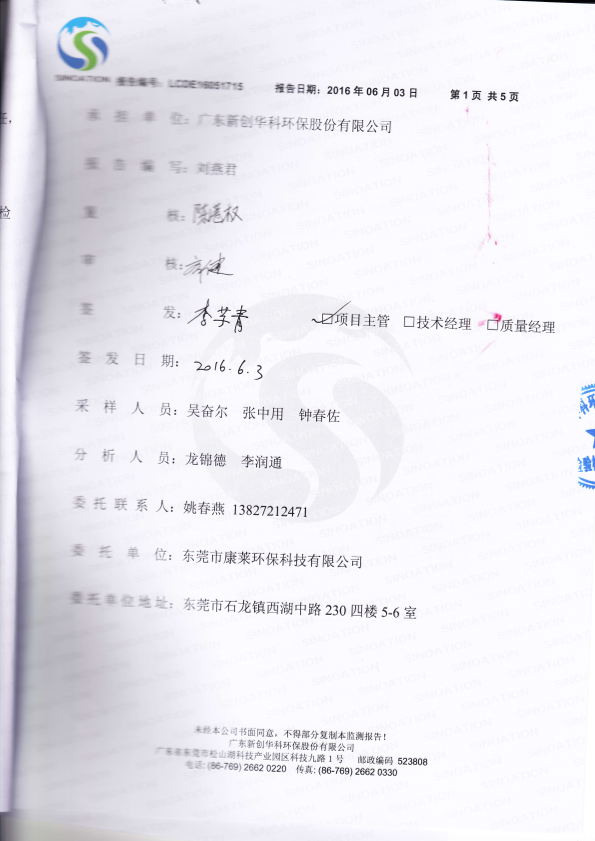 SINOATION 报告编号：LCDE16051715 报告日期：2016 年 06 月 03 日 第 1 页 共 5 页
承 担 单 位：广东新创华科环保股份有限公司
报 告 编 写：刘燕君
复 核：
审 核：
签 发：李芙青 ☐项目主管 ☐技术经理 ☐质量经理
签 发 日 期：2016.6.3
采 样 人 员：吴奋尔 张中用 钟春佐
分 析 人 员：龙锦德 李润通
委 托 联 系 人：姚春燕 13827212471
委 托 单 位：东莞市康莱环保科技有限公司
委托单位地址：东莞市石龙镇西湖中路 230 四楼 5-6 室
未经本公司书面同意，不得部分复制本监测报告！
广东新创华科环保股份有限公司
广东省东莞市松山湖科技产业园区科技九路 1 号 邮政编码 523808
电话: (86-769) 2662 0220 传真: (86-769) 2662 0330